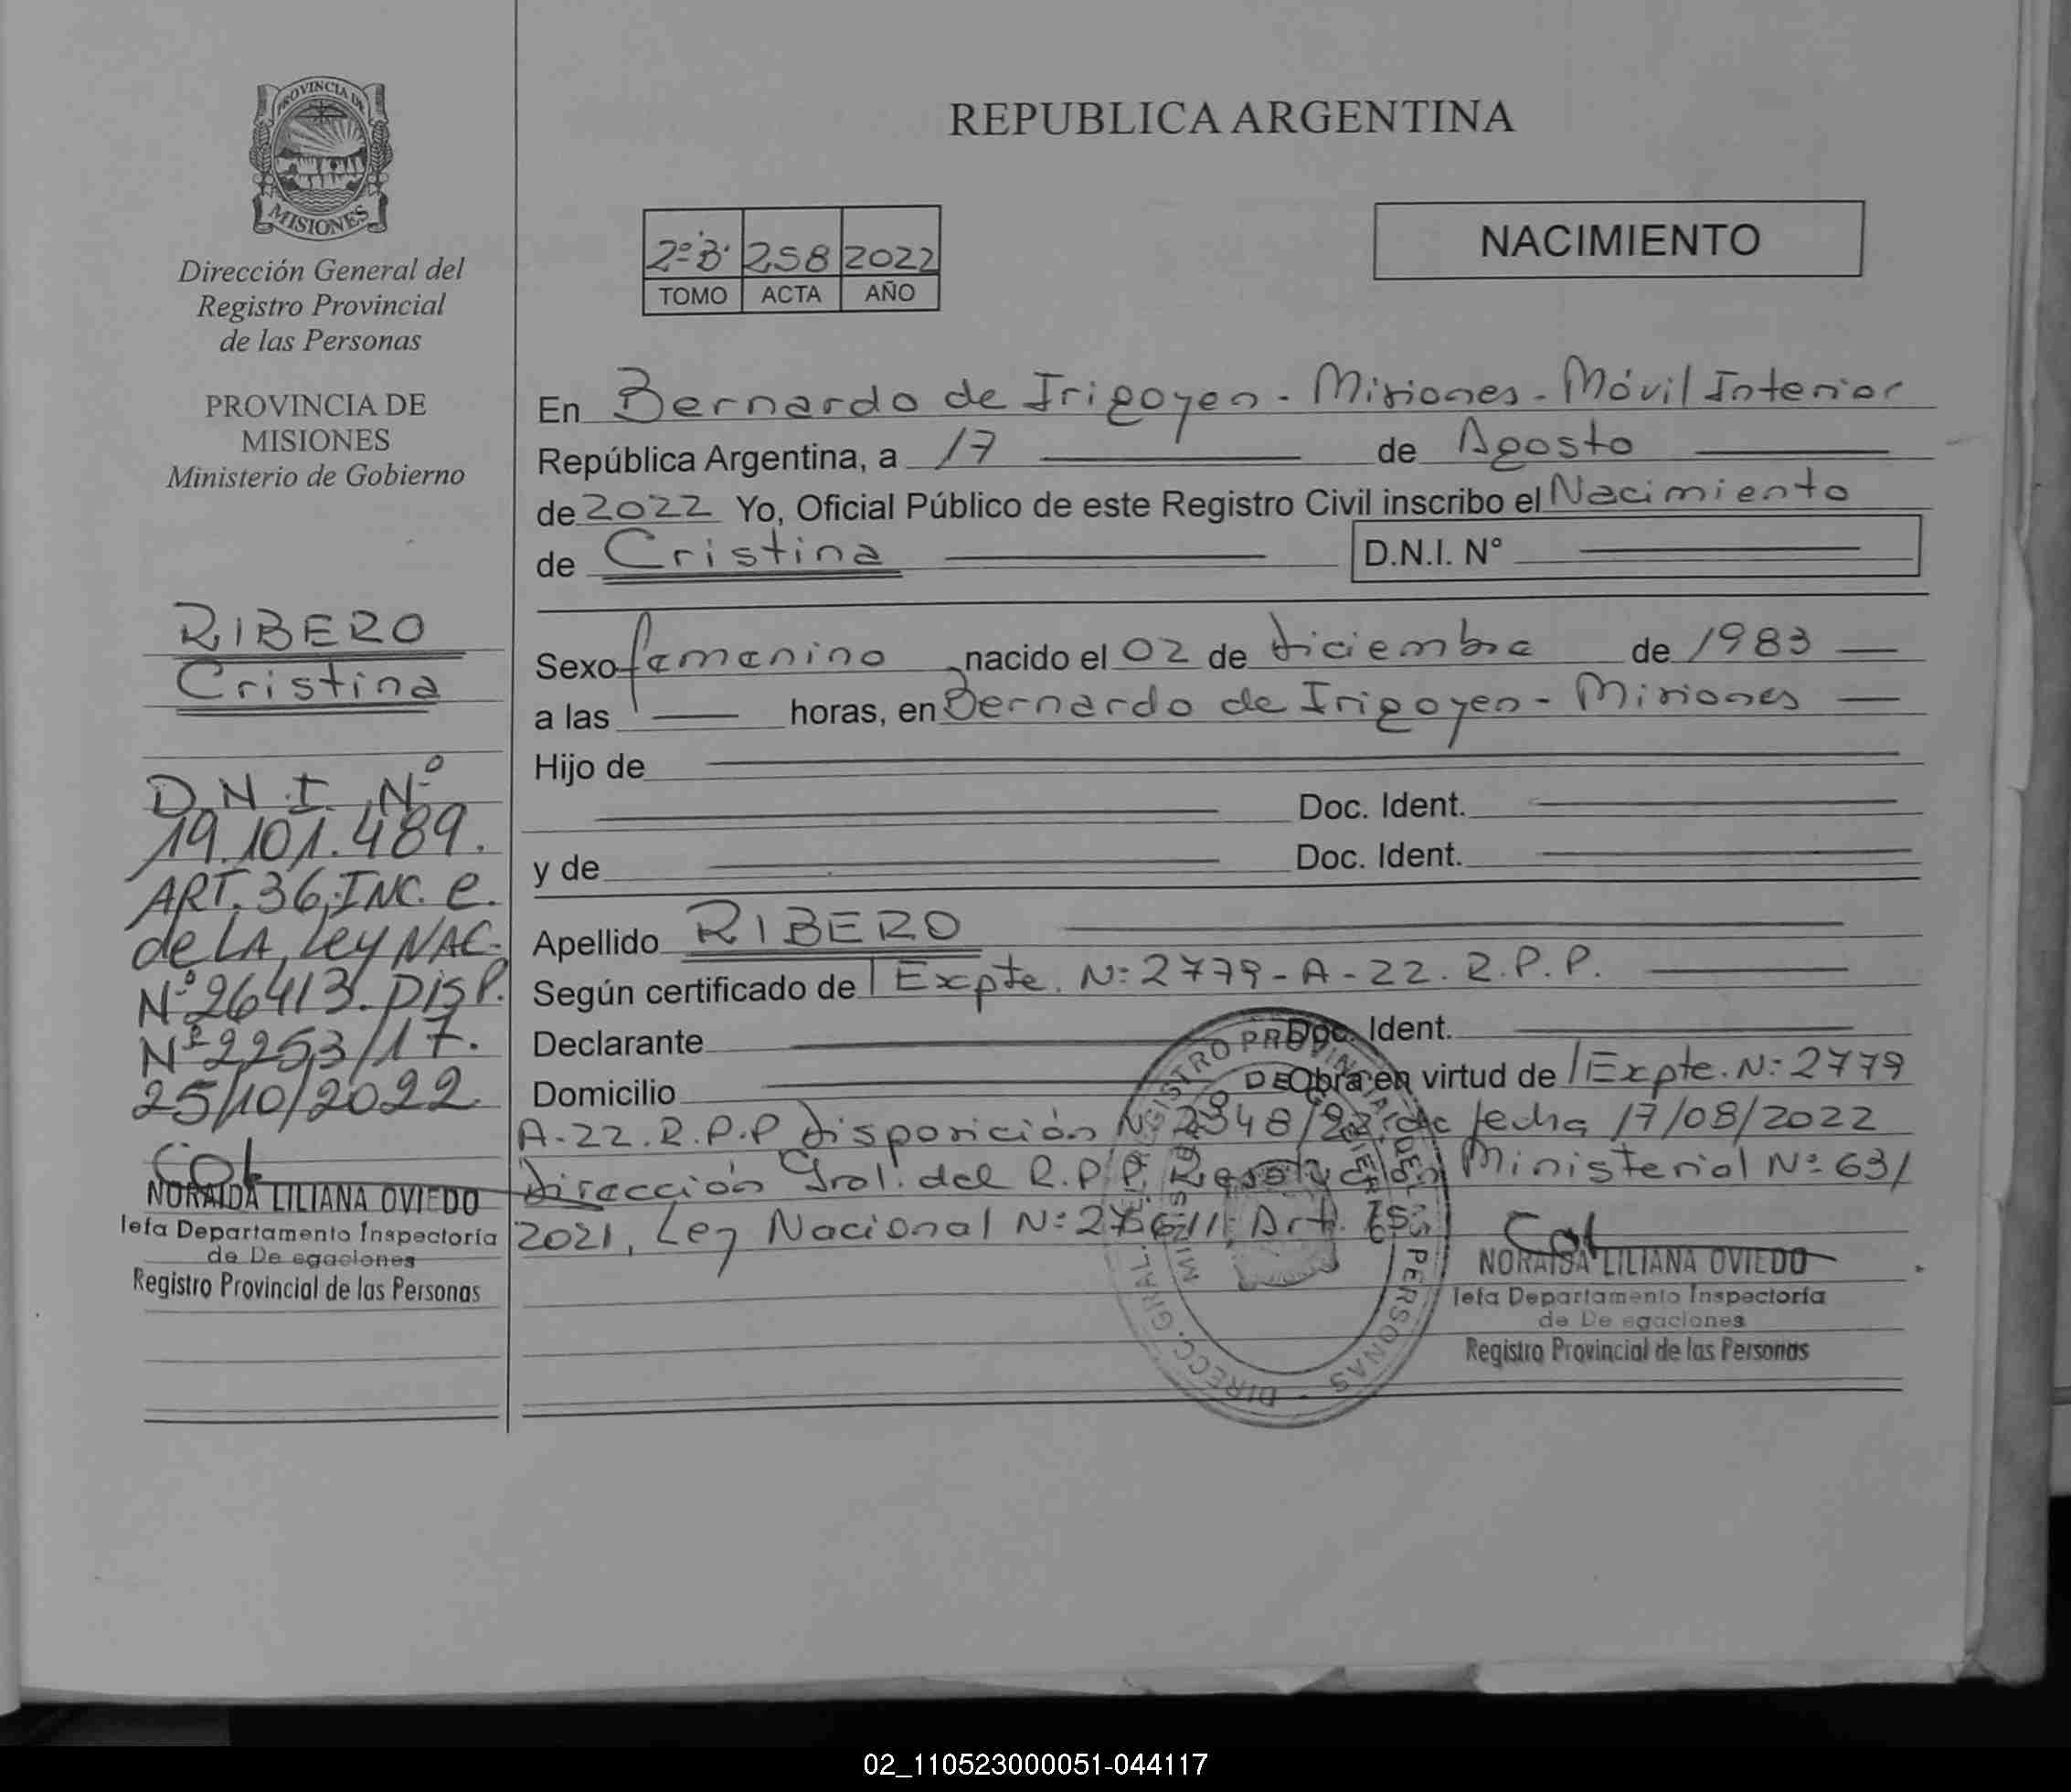 PROVINCIA DE
MISIONES
Dirección General del
Registro Provincial
de las Personas
PROVINCIA DE
MISIONES
Ministerio de Gobierno
RIBERO
Cristina
D.N.I. Nº
19.101.489.
ART. 36, INC. e.
de LA Ley NAC.
Nº 26413. DISP.
Nº 2253/17.
25/10/2022
NORAIDA LILIANA OVIEDO
Jefa Departamento Inspectoría
de De egaciones
Registro Provincial de las Personas
REPUBLICA ARGENTINA
2º B. 258 2022
TOMO ACTA AÑO
NACIMIENTO
En Bernardo de Irigoyen - Misiones - Móvil Interior
República Argentina, a 17 de Agosto
de 2022 Yo, Oficial Público de este Registro Civil inscribo el Nacimiento
de Cristina D.N.I. N°
Sexo femenino nacido el 02 de diciembre de 1983
a las horas, en Bernardo de Irigoyen - Misiones
Hijo de
Doc. Ident.
y de Doc. Ident.
Apellido RIBERO
Según certificado de Expte. Nº 2779-A-22. R.P.P.
Declarante Doc. Ident.
Domicilio Obra en virtud de Expte. Nº 2779
A-22.R.P.P disposición Nº 2348/22 de fecha 17/08/2022
Dirección Gral. del R.P.P. Resolución Ministerial Nº 631
2021, Ley Nacional Nº 27611, Art.
DIRECC. GRAL. DEL REGISTRO PROVINCIAL DE LAS PERSONAS
NORAIDA LILIANA OVIEDO
Jefa Departamento Inspectoría
de De egaciones
Registro Provincial de las Personas
02_110523000051-044117